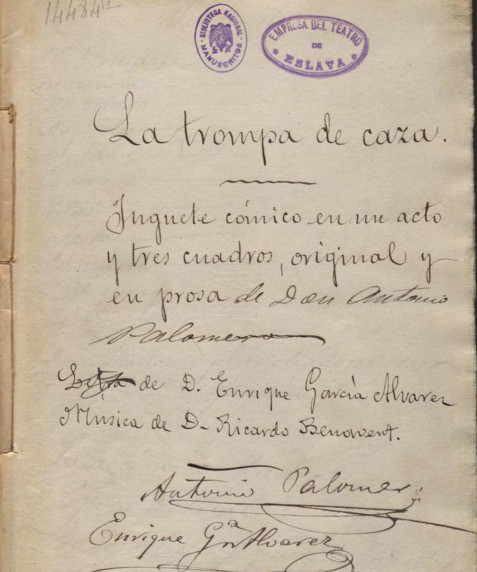 14484
BIBLIOTECA NACIONAL
MANUSCRITOS
EMPRESA DEL TEATRO
DE
ESLAVA
La trompa de caza.
Juguete cómico en un acto
y tres cuadros, original y
en prosa de Don Antonio
Palomero
Letra de D. Enrique García Alvarez
Música de D. Ricardo Benavent.
Antonio Palomero
Enrique Gª Alvarez